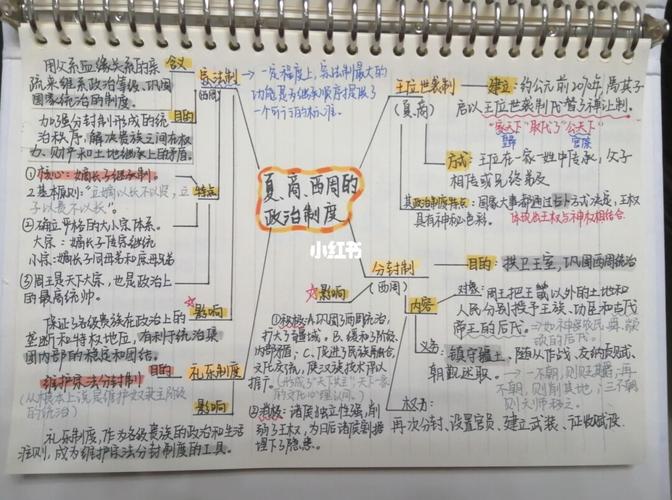 用父系血缘关系的亲
疏来维系政治等级、巩固
国家统治的制度。
含义
宗法制
(西周)
→一定程度上，宗法制最大的
功能是为继承顺序提供了
一个可行的标准。
目的
加强分封制形成的统
治秩序，解决贵族之间在权
力、财产和土地继承上的矛盾。
特点
①核心：嫡长子继承制。
2.基本原则："立嫡以长不以贤，立
子以贵不以长"。
②确立严格的大小宗体系。
大宗：嫡长子
小宗：嫡长子同母弟和庶母兄弟
③周王是天下大宗，也是政治上
的最高统帅。
影响
保证了各级贵族在政治上的
垄断和特权地位，有利于统治集
团内部的稳定和团结。
夏、商、西周的
政治制度
小红书
王位世袭制
(夏、商)
建立：约公元前2070年，禹其子
启以王位世袭制代替了禅让制。
"家天下"取代了"公天下"
方式：王位在一家一姓中传承，父子
相传或兄终弟及
其政治制度特点：国家大事都通过占卜方式决定，王权
具有神秘色彩。
体现出王权与神权相结合。
分封制
(西周)
目的：拱卫王室，巩固西周统治
内容
对象：周王把王畿以外的土地和
人民分别授予王族、功臣和古代
帝王的后代。
义务：镇守疆土，随从作战、交纳贡赋、
朝觐述职。
→一不朝，则贬其爵；再
不朝，则削其地；三不朝
权力：
再次分封、设置官员、建立武装、征收赋役
影响
①积极：A.巩固了西周统治，
扩大了疆域。B.缓和了阶级、
内部矛盾；C.促进了民族融合、
②消极：诸侯独立性强，削
弱了王权，为日后诸侯割据
埋下了隐患。
礼乐制度
目的
维护宗法分封制
影响
礼乐制度，作为各级贵族的政治和生活
准则，成为维护宗法分封制度的工具。